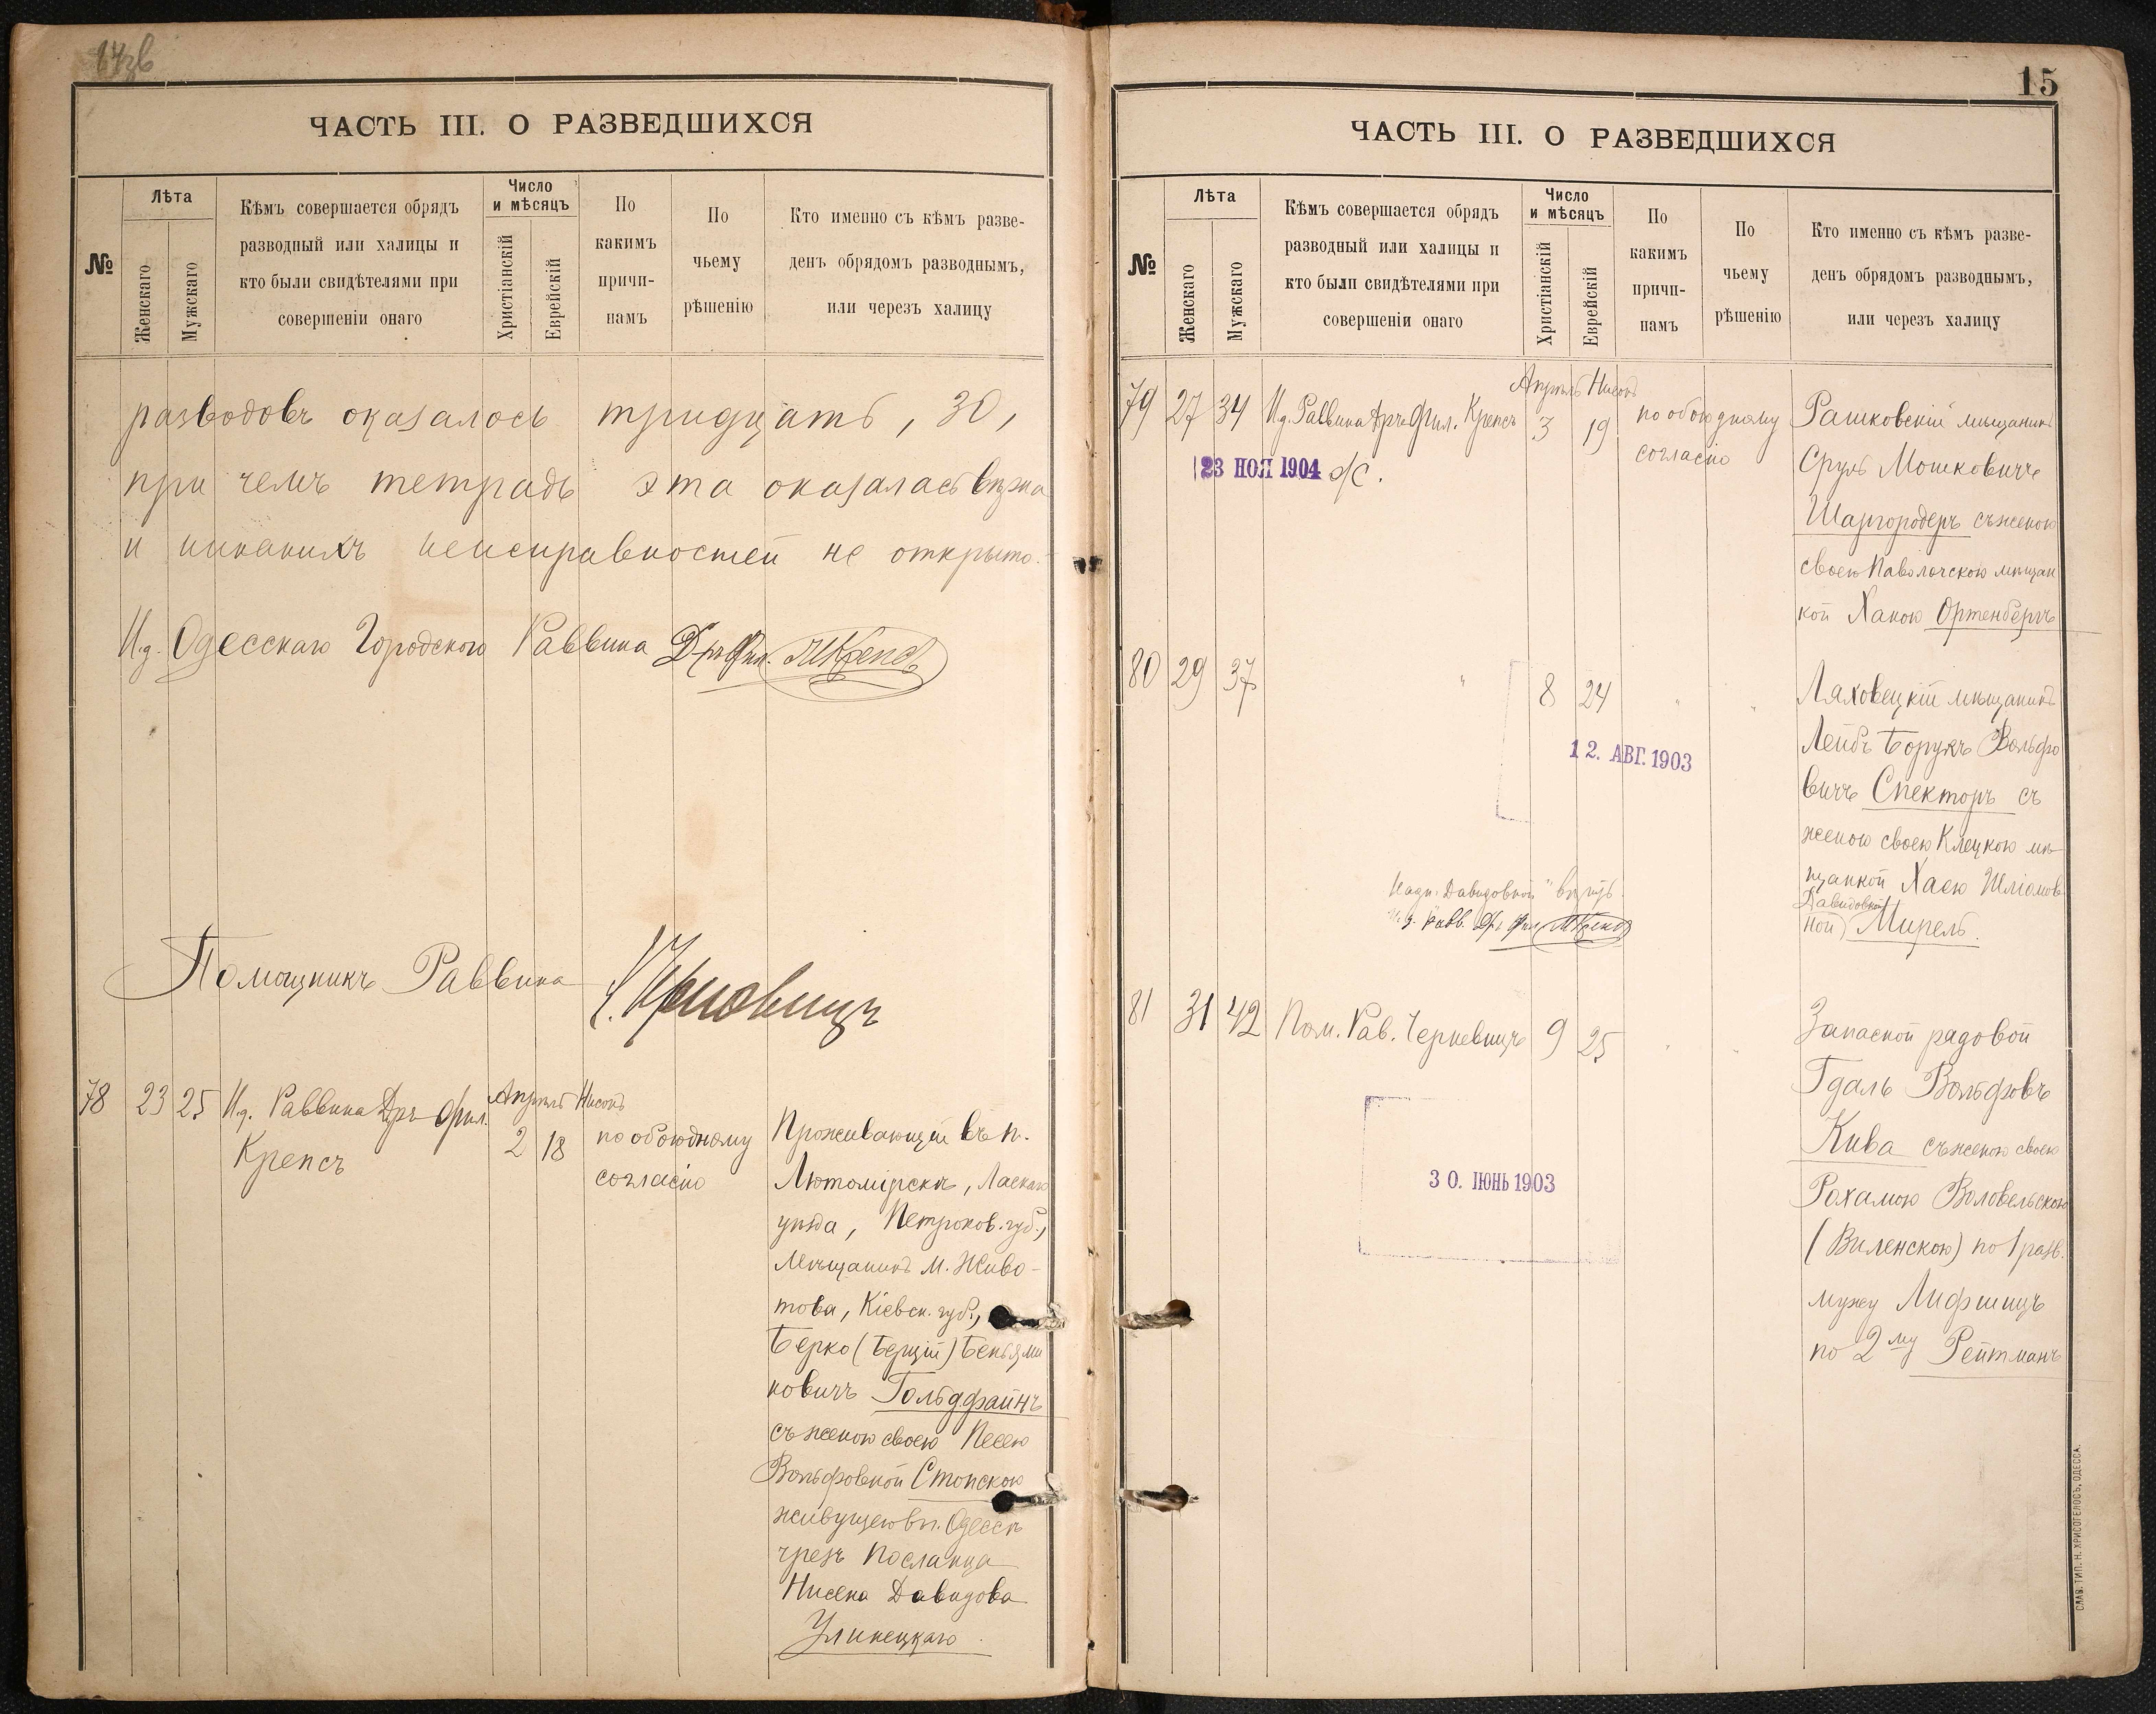 ЧАСТЬ III. О РАЗВЕДШИХСЯ
№
Лѣта
Женскаго
Мужскаго
Кѣмъ совершается обрядъ
разводный или халицы и
кто были свидѣтелями при
совершеніи онаго
Число
и мѣсяцъ
Христіанскій
Еврейскій
По
какимъ
причи-
намъ
По
чьему
рѣшенію
Кто именно съ кѣмъ разве-
денъ обрядомъ разводнымъ,
или черезъ халицу
разводовъ оказалось тридцать, 30,
при чемъ тетрадь эта оказалась вѣрна
и никакихъ неисправностей не открыто.
И.д. Одесскаго Городского Раввина Д-ръ Фил. МКрепсъ
Помощникъ Раввина
78 23 25 И.д. Раввина Д-ръ Фил.
Крепсъ
Апрѣль Нисонъ
2 18
по обоюдному
согласію
Проживающій въ п.
Лютомірскѣ, Ласкаго
уѣзда, Петроков. губ.,
Мѣщанинъ м. Живо-
това, Кіевск. губ.,
Берко (Берцій) Беньями
новичъ Гольдфайнъ
съ женою своею Песею
Вольфовной Стопскою
живущею въ г. Одессѣ
чрезъ посланца
Нисена Давидова
Улинецкаго.
15
ЧАСТЬ III. О РАЗВЕДШИХСЯ
№
Лѣта
Женскаго
Мужскаго
Кѣмъ совершается обрядъ
разводный или халицы и
кто были свидѣтелями при
совершеніи онаго
Число
и мѣсяцъ
Христіанскій
Еврейскій
По
какимъ
причи-
намъ
По
чьему
рѣшенію
Кто именно съ кѣмъ разве-
денъ обрядомъ разводнымъ,
или черезъ халицу
79 27 34 И.д. Раввина Д-ръ Фил. Крепсъ
Апрѣль Нисонъ
3 19
по обоюдному
согласію
23 НОЯ 1904
Рашковскій мѣщанинъ
Сруль Мошковичъ
Шаргородеръ съ женою
своею Паволочскою мѣщан
кой Ханою Ортенбергъ
80 29 37 " 8 24 " "
12. АВГ. 1903
Ляховецкій мѣщанинъ
Лейбъ Борухъ Вольфо
вичъ Спекторъ съ
женою своею Клецкою мѣ-
щанкой Хаею Шліомов-
Давидовной
ной) Мирель.
Надп. "Давидовной" вѣрить.
И.д. Равв. Д-ръ Фил. МКрепсъ
81 31 42 Пом. Рав. Черновицъ 9 25 " "
30. ІЮНЬ 1903
Запасной рядовой
Гдаль Вольфовъ
Кива съ женою своею
Рохамою Воловельскою
(Виленскою) по 1 разв.
мужу Лифшицъ
по 2му Рейтманъ
СЛАВ. ТИП. Н. ХРИСОГЕЛОСЪ, ОДЕССА.